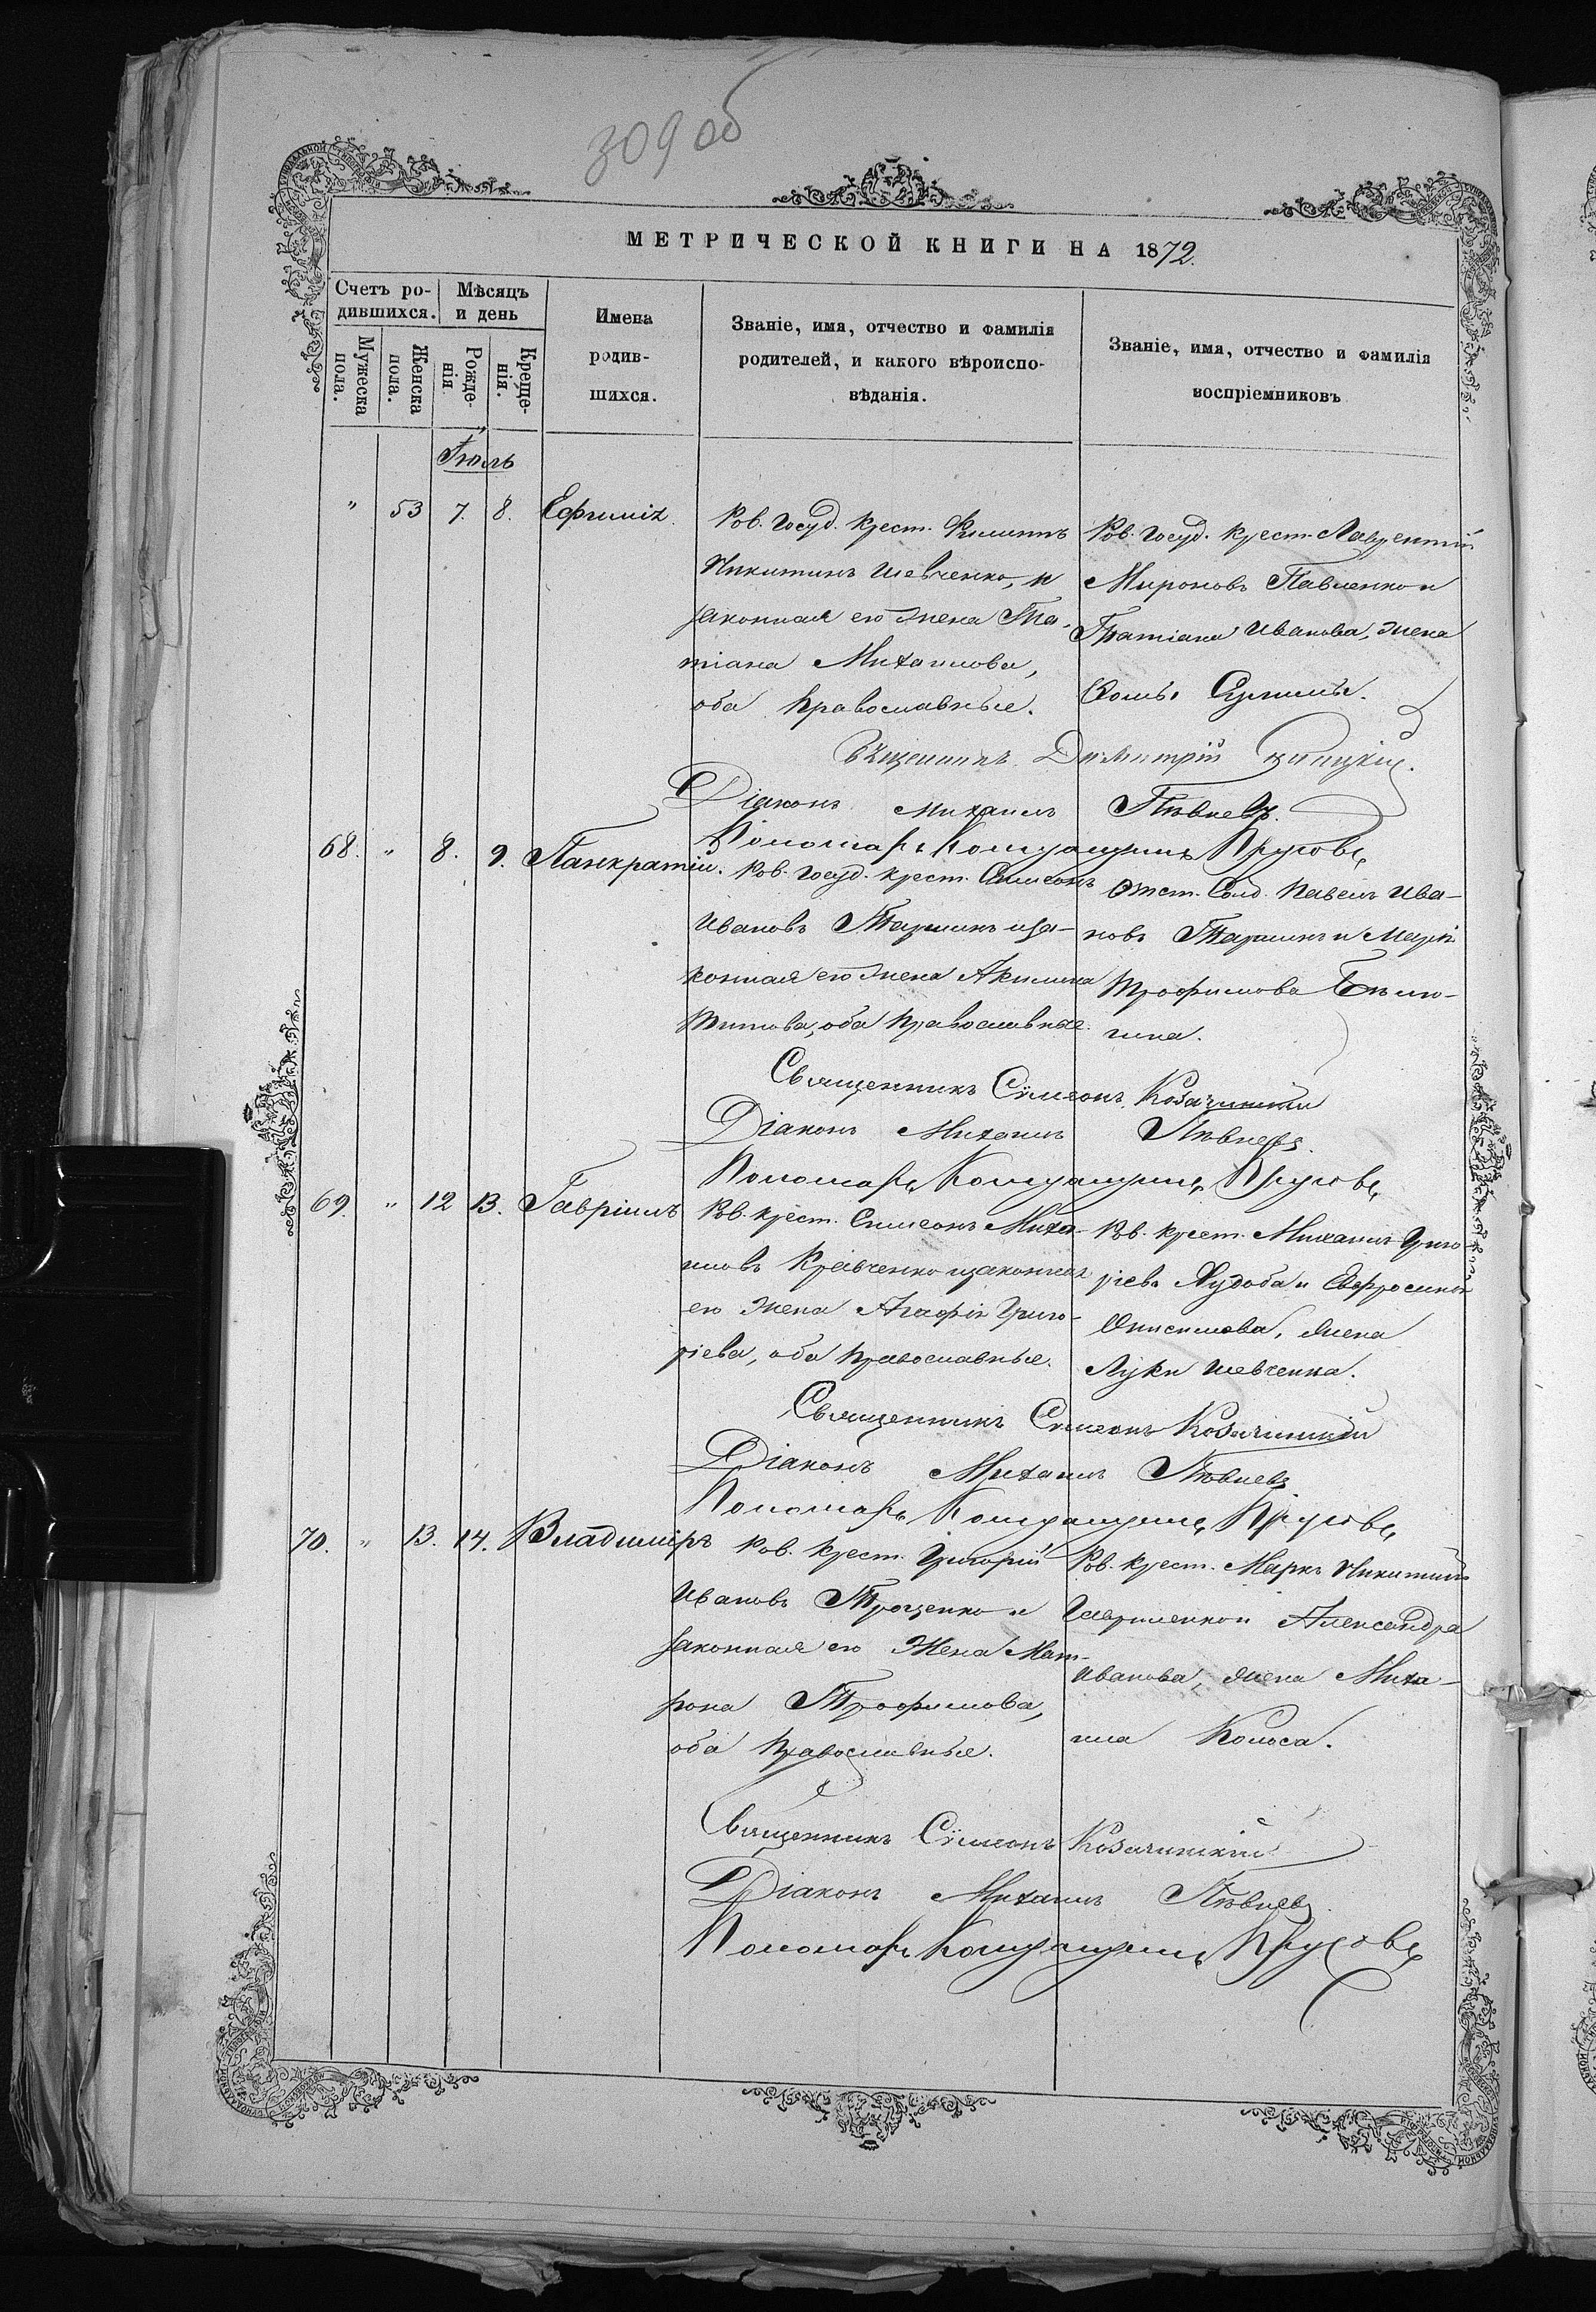 309 об
МЕТРИЧЕСКОЙ КНИГИ НА 1872.
Счетъ ро-
дившихся.
Мѣсяцъ
и день
Мужеска
пола.
Женска
пола.
Рожде-
нія.
Креще-
нія.
Имена
родив-
шихся.
Званіе, имя, отчество и фамилія
родителей, и какого вѣроиспо-
вѣданія.
Званіе, имя, отчество и фамилія
воспріемниковъ
Іюль
" 53 7. 8. Ефимія.
Ров. Госуд. Крест. Филиппъ
Никитинъ Шевченко, и
законная его жена Та-
тіана Михаилова,
оба Православные.
Ров. Госуд. Крест. Лаврентій
Мироновъ Павленко и
Татіана Иванова, жена
Фомы
Священникъ Димитрій
Діаконъ Михаилъ Пѣвневъ.
Пономарь
68. " 8. 9. Панкратій.
Ров. Госуд. Крест. Симеонъ
Ивановъ и за-
конная его жена Акилина
Титова, оба Православные.
Отст. Солд. Павелъ Ива-
новъ и Марія
Трофимова
Священникъ Сѵмеонъ Козачинскій
Діаконъ Михаилъ Пѣвневъ.
Пономарь
69. " 12 13. Гавріилъ
Ров. Крест. Симеонъ Миха-
иловъ Кравченко и законная
его жена Агафія Григо-
ріева, оба Православные.
Ров. Крест. Михаилъ Григо-
ріевъ Худоба и Евфросинія
Онисимова, жена
Луки Шевченка.
Священникъ Сѵмеонъ Козачинскій
Діаконъ Михаилъ Пѣвневъ
Пономарь
70. " 13. 14. Владиміръ
Ров. Крест. Григорій
Ивановъ Троценко и
законная его Жена Мат-
рона Трофимова,
оба Православные.
Ров. Крест. Маркъ Никитинъ
Гавриленко и Александра
Иванова, жена Миха-
ила Колоса.
Священникъ Сѵмеонъ Козачинскій
Діаконъ Михаилъ Пѣвневъ.
Пономарь